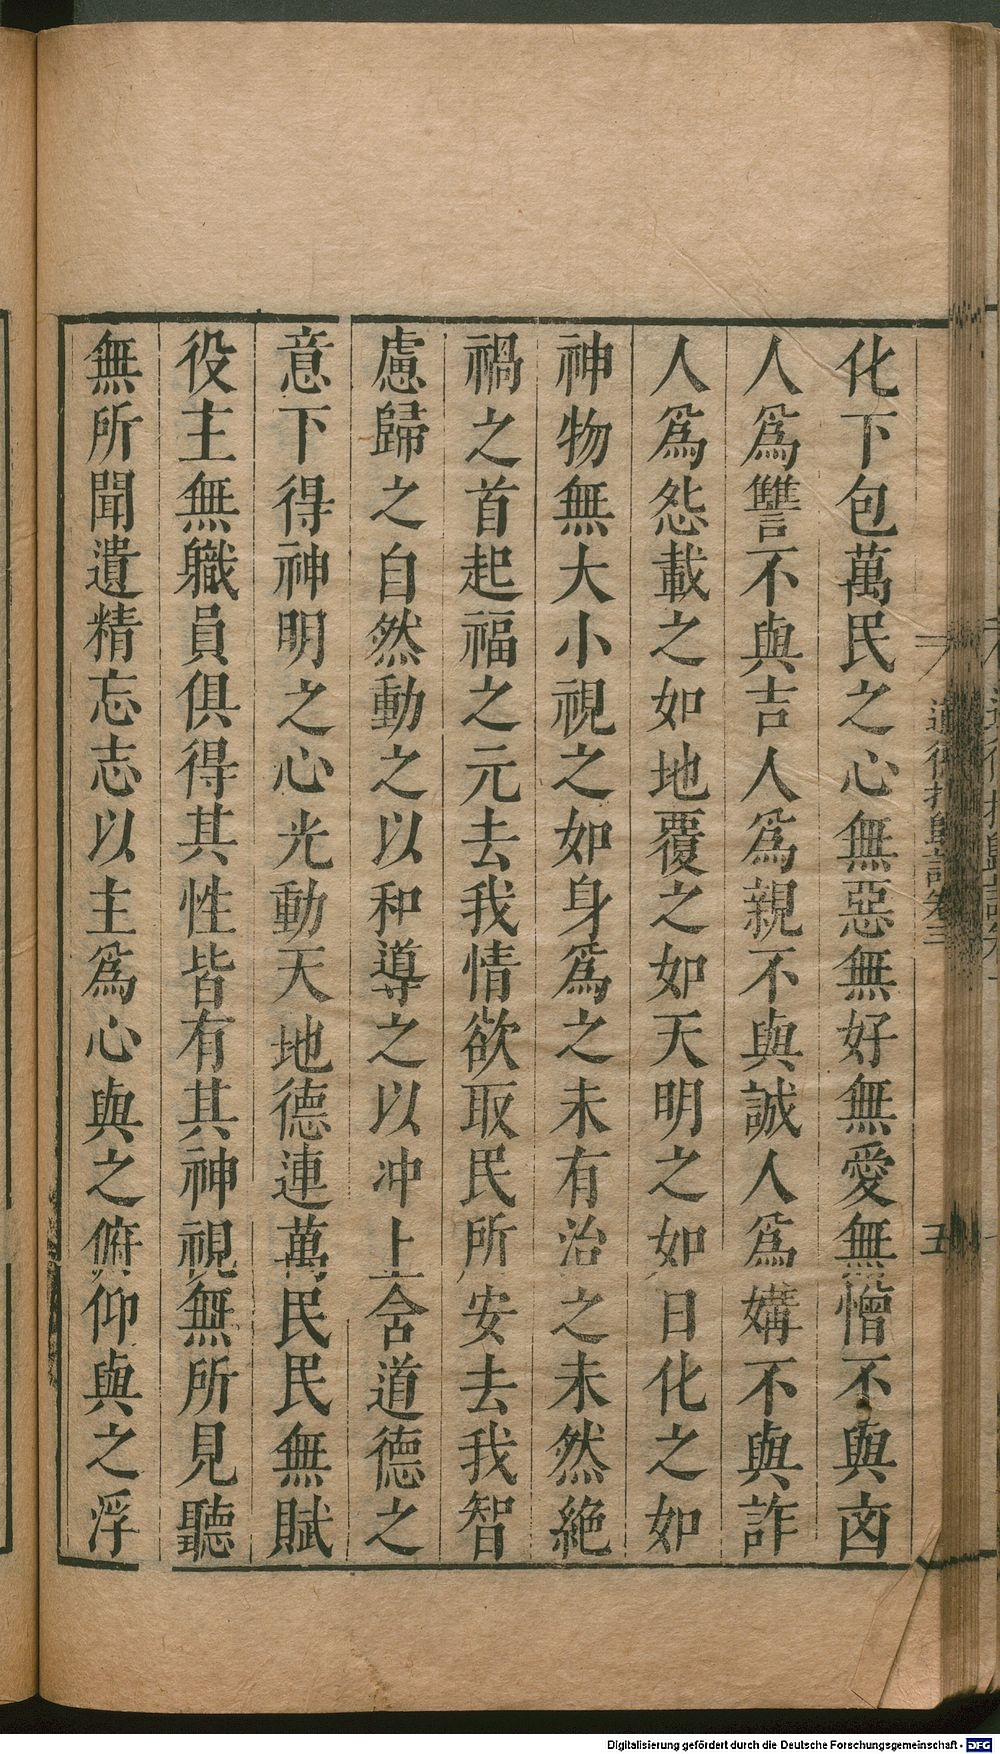 化下包萬民之心無惡無好無愛無憎不與㐫
人爲讐不與吉人爲親不與誠人爲媾不與詐
人爲怨載之如地覆之如天明之如日化之如
神物無大小視之如身爲之未有治之未然絶
禍之首起福之元去我情欲取民所安去我智
慮歸之自然動之以和導之以冲上含道德之
意下得神明之心光動天地德連萬民民無賦
役主無職員俱得其性皆有其神視無所見聽
無所聞遺精忘志以主爲心與之俯仰與之浮
道德指歸論卷三
五
Digitalisierung gefördert durch die Deutsche Forschungsgemeinschaft - DFG